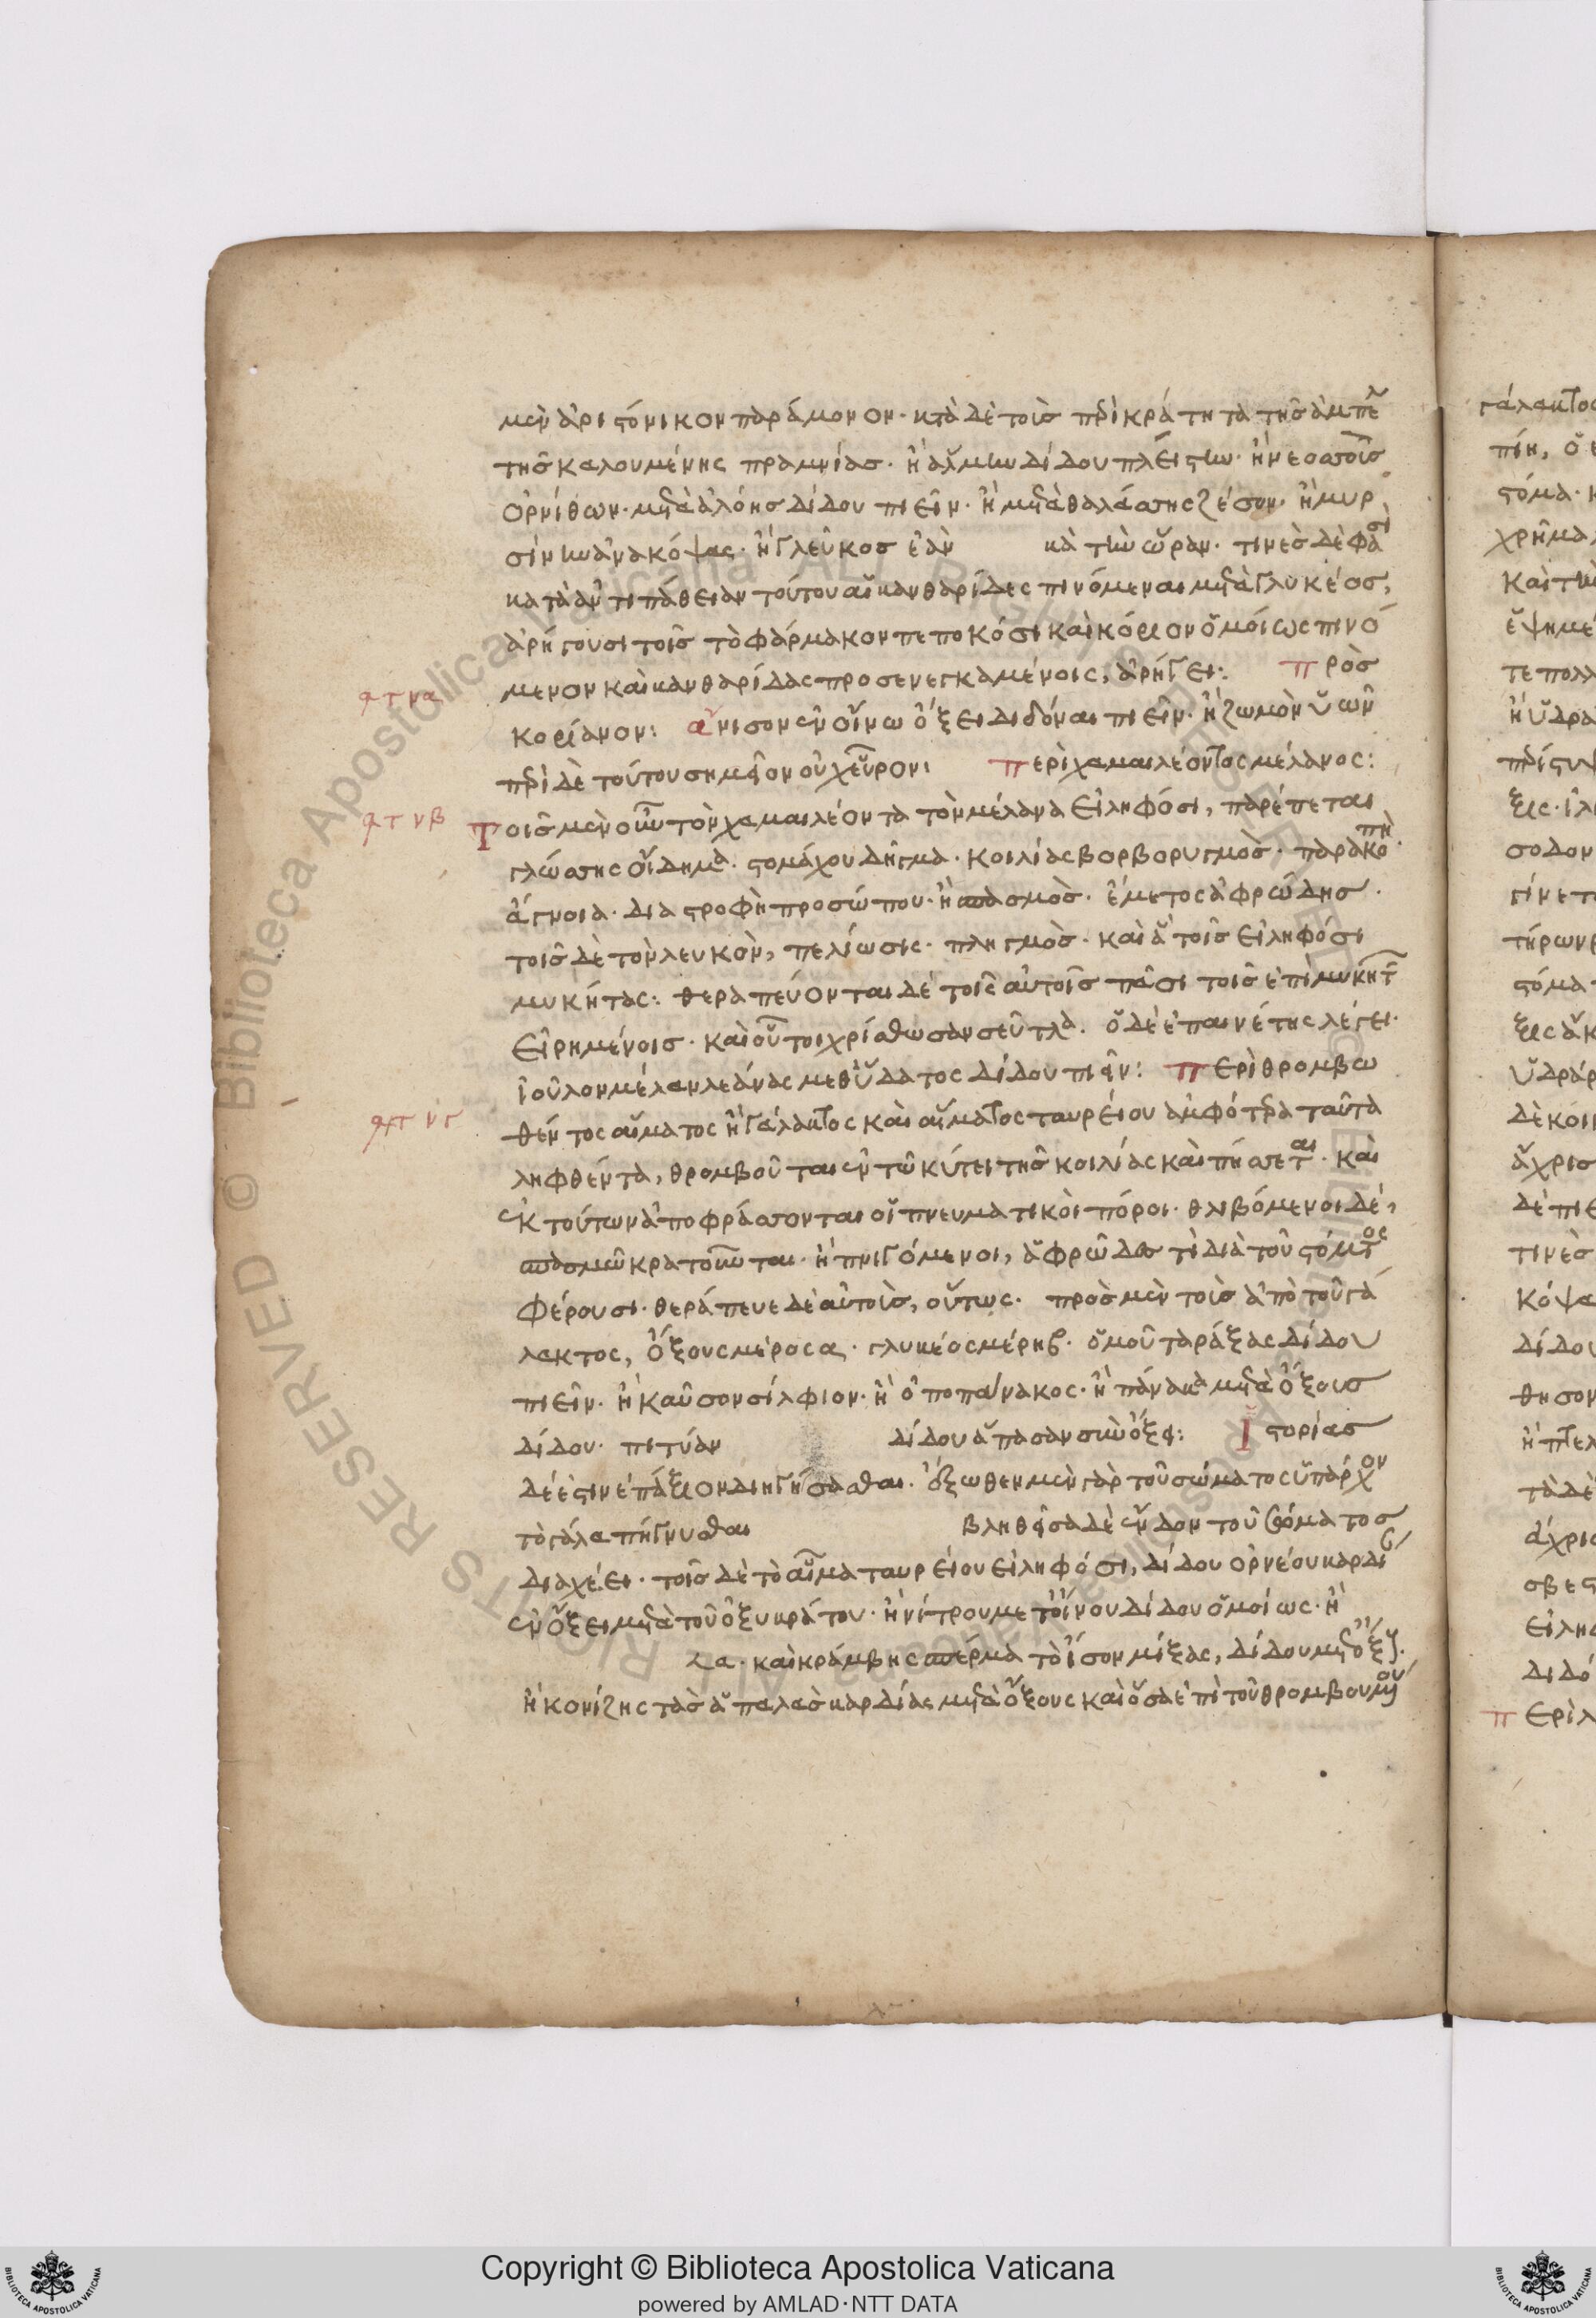 μὲν ἀριστόνικον παράμονον· κτὰ δὲ τοῖσ πρὶ κράτητα τῆς ἀμπε
τῆς καλουμένης πραμνίασ· ἢ ἅλμην δίδου πλείστην· ἢ νεοσσοῖσ
ὀρνίθων· μετὰ ἀλόησ δίδου πιεῖν· ἢ μετὰ θαλάσσης ζέσον· ἢ μυρ
σίνην ἀνακόψας· ἢ γλεῦκοσ ἐὰν κὰ τὴν ὥραν· τινὲσ δὲ φασὶ
κατὰ ἀντιπάθειαν τούτου αἱ κανθαρίδες πινόμεναι μετὰ γλυκέοσ,
ἀρήγουσι τοῖσ τὸ φάρμακον πεποκόσι καὶ κόριον ὁμοίως πινό
φτνα μενον καὶ κανθαρίδας προσενεγκαμένοις, ἀρήγει: πρὸσ
κορίανον: ἄνισον ἐν οἴνω ὄξει διδόναι πιεῖν· ἢ ζωμὸν ὑῶν
πρὶ δὲ τούτου σημεῖον οὐχ εὗρον: περὶ χαμαιλέοντος μέλανος:
φτνβ Τοῖς μὲν οὖν τὸν χαμαιλέοντα τὸν μέλανα εἰληφόσι, παρέπεται
γλώσσης οἴδημα· στομάχου δῆγμα· κοιλίας βορβορυγμὸσ· παρακοπὴ·
ἄγνοια· διαστροφὴ προσώπου· ἢ σπασμὸσ· ἔμετος ἀφρώδησ·
τοῖς δὲ τὸν λευκὸν, πελίωσις· πνιγμὸσ· καὶ ἃ τοῖς εἰληφόσι
μυκήτας: θεραπεύονται δὲ τοῖς αὐτοῖσ πᾶσι τοῖς ἐπὶ μυκήτ
εἰρημένοισ· καὶ οὗτοι χρίσθωσαν σεῦτλα· ὁ δὲ ἐπαινέτης λέγει·
ἰοῦλον μέλαν λεάνας μεθ ὕδατος δίδου πιεῖν: περὶ θρομβω
φτνγ θέντος αἵματος ἢ γάλακτος καὶ αἵματος ταυρείου ἀμφότρα ταῦτα
ληφθέντα, θρομβοῦται ἐν τῶ κύτει τῆς κοιλίας καὶ πήσσεται· καὶ
ἐκ τούτων ἀποφράσσονται οἱ πνευματικοὶ πόροι· θλιβόμενοι δὲ,
σπασμῶ κρατοῦνται· ἢ πνιγόμενοι, ἀφρῶδες τὶ διὰ τοῦ στόματος
φέρουσι· θεράπευε δὲ αὐτοῖσ, οὕτως· πρὸσ μὲν τοῖσ ἀπὸ τοῦ γά
λακτος, ὄξους μέρος α· γλυκέος μέρη β· ὁμοῦ ταράξας δίδου
πιεῖν· ἢ καῦσον σίλφιον· ἢ ὀποπάνακος· ἢ πάνακα μετὰ ὄξουσ
δίδου· πιτύαν δίδου ἅπασαν σὺν ὄξει: Ἱστορίασ
δέ ἐστιν ἐπάξιον διηγήσασθαι· ἔξωθεν μὲν γὰρ τοῦ σώματος ὑπάρχον
τὸ γάλα πήγνυσθαι βληθεῖσα δὲ ἔνδον τοῦ σώματοσ
διαχέει· τοῖς δὲ τὸ αἷμα ταυρείου εἰληφόσι, δίδου ὀρνέου καρδί
ἐν ὄξει μετὰ τοῦ ὀξυκράτου· ἢ νίτρου μετ οἴνου δίδου ὁμοίως· ἢ
λα· καὶ κράμβης σπέρμα τὸ ἴσον μίξας, δίδου μετ ὄξους·
ἢ κονίζης τὰσ ἁπαλὰσ καρδίας μετὰ ὄξους καὶ ὅσα ἐπὶ τοῦ θρομβουμ